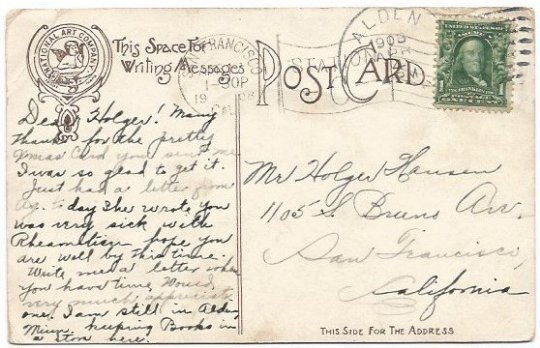 NATIONAL ART COMPANY
This Space For
Writing Messages
POST CARD
SAN FRANCISCO
1908
Cal
STA
ALDEN
190
APR
Dear Holger! Many
thanks for the pretty
Xmas Card you sent me
I was so glad to get it.
Just had a letter from
Ag. to day She wrote you
was very sick with
Rheumatism hope you
are well by this time.
Write me a letter when
you have time, Would
very much appreciate
one. I am still in Alden
Minn. keeping Books in
a Store here.
Mr Holger Hansen
1105 S Bruno Av.
San Francisco,
California
THIS SIDE FOR THE ADDRESS